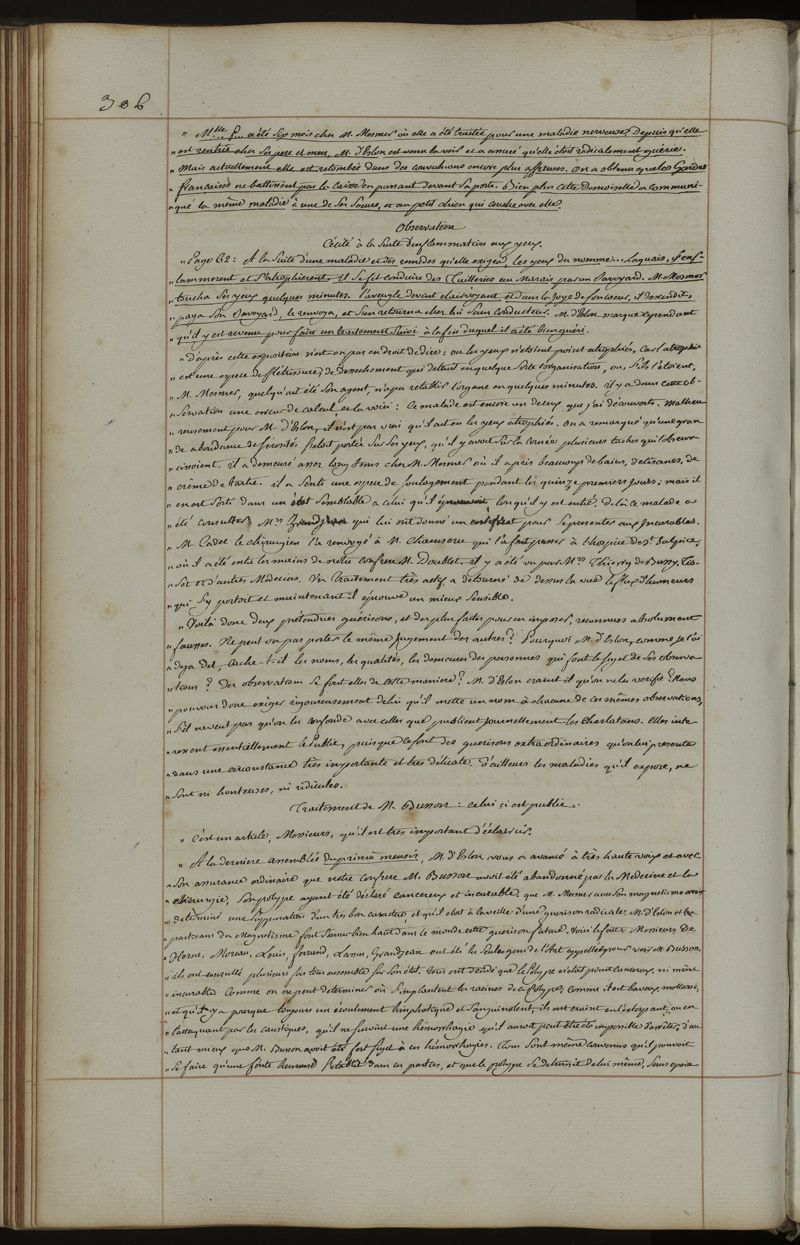 306
" M.lle P... a été six mois chez M. Mesmer où elle a été traitée pour une maladie nerveuse. Depuis qu'elle
" est rentrée chez ses pere et mere, M. d'Eslon est venu la voir et a assuré qu'elle étoit radicalement guérie.
" Mais actuellement elle est retombée dans des convulsions encore plus affreuses. On a obtenu que les Gardes
" françaises ne battissent pas la caisse en passant devant sa porte. Bien plus cette demoiselle a communi-
" qué la même maladie à une de ses soeurs, et au petit chien qui couche avec elle.
Observation
Cécité à la suite d'inflammation aux yeux.
" Page 62 : A la suite d'une maladie et des remedes qu'elle exigea, les yeux du nommé... Laquais, s'enf-
" lammerent et s'atrophierent, il se fit conduire des Thuilleries au Marais par un Savoyard. M. Mesmer
" toucha ses yeux quelques minutes. l'aveugle devint clairvoyant et dans la joye de son coeur, il descendit,
" paya son Savoyard, le renvoya, et s'en retourna chez lui sans conducteur. M. d'Eslon marque cependant
" qu'il y est revenu pour faire un traitement suivi à la fin duquel il a été bien guéri.
" D'après cette exposition n'est-on pas en droit de dire : ou les yeux n'étoient point atrophiés, car l'atrophie
" est une espece de flétrissure, de dessechement qui détruit en quelque sorte l'organisation, ou, s'ils l'étoient,
" M. Mesmer, quelqu'ait été son agent, n'a pu rétablir l'organe en quelques minutes. il y a dans cette ob-
" servation une erreur de calcul, et la voici : Ce malade est encore un de ceux que j'ai découverts. Malheu-
" reusement pour M. d'Eslon, il n'est pas vrai qu'il ait eu les yeux atrophiés. On a remarqué qu'une gran
" de abondance de sérosités s'etoit portée sur ses yeux, qu'il y avoit sur la cornée plusieurs taches qui l'obscur
" cissoient. il a demeuré assez long tems chez M. Mesmer où il a pris beaucoup de bains, de tisanes, de
" crême de tartre. il a senti une espece de soulagement pendant les quinze premiers jours, mais il
" en est sorti dans un état semblable a celui qu'il éprouvoit lorsqu'il y est entré. Delà ce malade a
" été consulter M.rs Grandjean qui lui ont donné un certificat pour se presenter aux Incurables.
" M. Cadet le chirurgien l'a renvoyé à M. Chaussere qui l'a fait passer à l'hospice de St. Sulpice,
" où il a été entre les mains de notre confrere M. Doublet. il y a été vu par M.rs Thierry de Bussy, Cos-
" sot et d'autres Médecins. Un traitement très actif a detourné de dessus la vue le flux d'humeurs
" qui s'y portoit et maintenant il éprouve un mieux sensible.
" Voilà donc deux prétendues guérisons, et des plus faites pour en imposer, reconnues absolument
" fausses. Ne peut on pas porter le même jugement des autres? Pourquoi M. d'Eslon, comme je l'ai
" deja dit, cache-t-il les noms, les qualités, les demeures des personnes qui font le sujet de ses observa
" tions? Des observations se font elles de cette maniere? M. d'Eslon craint il qu'on ne les verifie? Nous
" pouvons donc exiger rigoureusement de lui qu'il mette un nom à chacune de ces mêmes observations,
" s'il ne veut pas qu'on les confonde avec celles que publient journellement les Charlatans. Elles inte-
" ressent essentiellement le Public, puisque ce sont des guerisons extraordinaires qu'on lui presente
" dans une circonstance très importante et très délicate. D'ailleurs les maladies qu'il expose, ne
" sont ni honteuses, ni ridicules.
Traitement de M. Busson : celui ci est public.
" C'est un article, Messieurs, qu'il est très important d'éclaircir.
" A la derniere assemblée du prima mensis, M. d'Eslon vous a avancé à très haute voix et avec
" son assurance ordinaire que notre confrere M. Busson avoit été abandonné par la Médecine et la
" chirurgie, son polype ayant été déclaré cancereux et incurable, que M. Mesmer avec son magnetisme avoit
" déterminé une suppuration d'un très bon caractere et qu'il étoit à la veille d'une guerison radicale. M. d'Eslon et les
" partisans du Magnetisme font sonner bien haut dans le monde cette guerison future. Voici le fait. Messieurs De
" Horne, Moreau, Louis, Ferrand, Lassus, Grandjean ont été les seuls gens de l'Art appellés pour voir M. Busson
" ils ont consulté plusieurs fois tous ensemble sur son état. Tous ont décidé que le Polype n'étoit point cancereux, ni même
" incurable. Comme on ne peut determiner où s'implantent les racines de ce Polype, comme il est baveux, mollasse,
" et qu'il y a presque toujours un écoulement limphatique et sanguinolent, ils ont craint en l'extirpant, ou en
" l'attaquant par les caustiques, qu'il ne survint une hémorrhagie qu'il auroit peut être été impossible d'arrêter, d'au
" tant mieux que M. Busson avoit été fort sujet à ces hémorrhagies. Tous sont même convenus qu'il pouvoit
" se faire qu'une fonte heureuse s'établit dans ces parties, et que le polype se détruisit de lui même, sans opéra